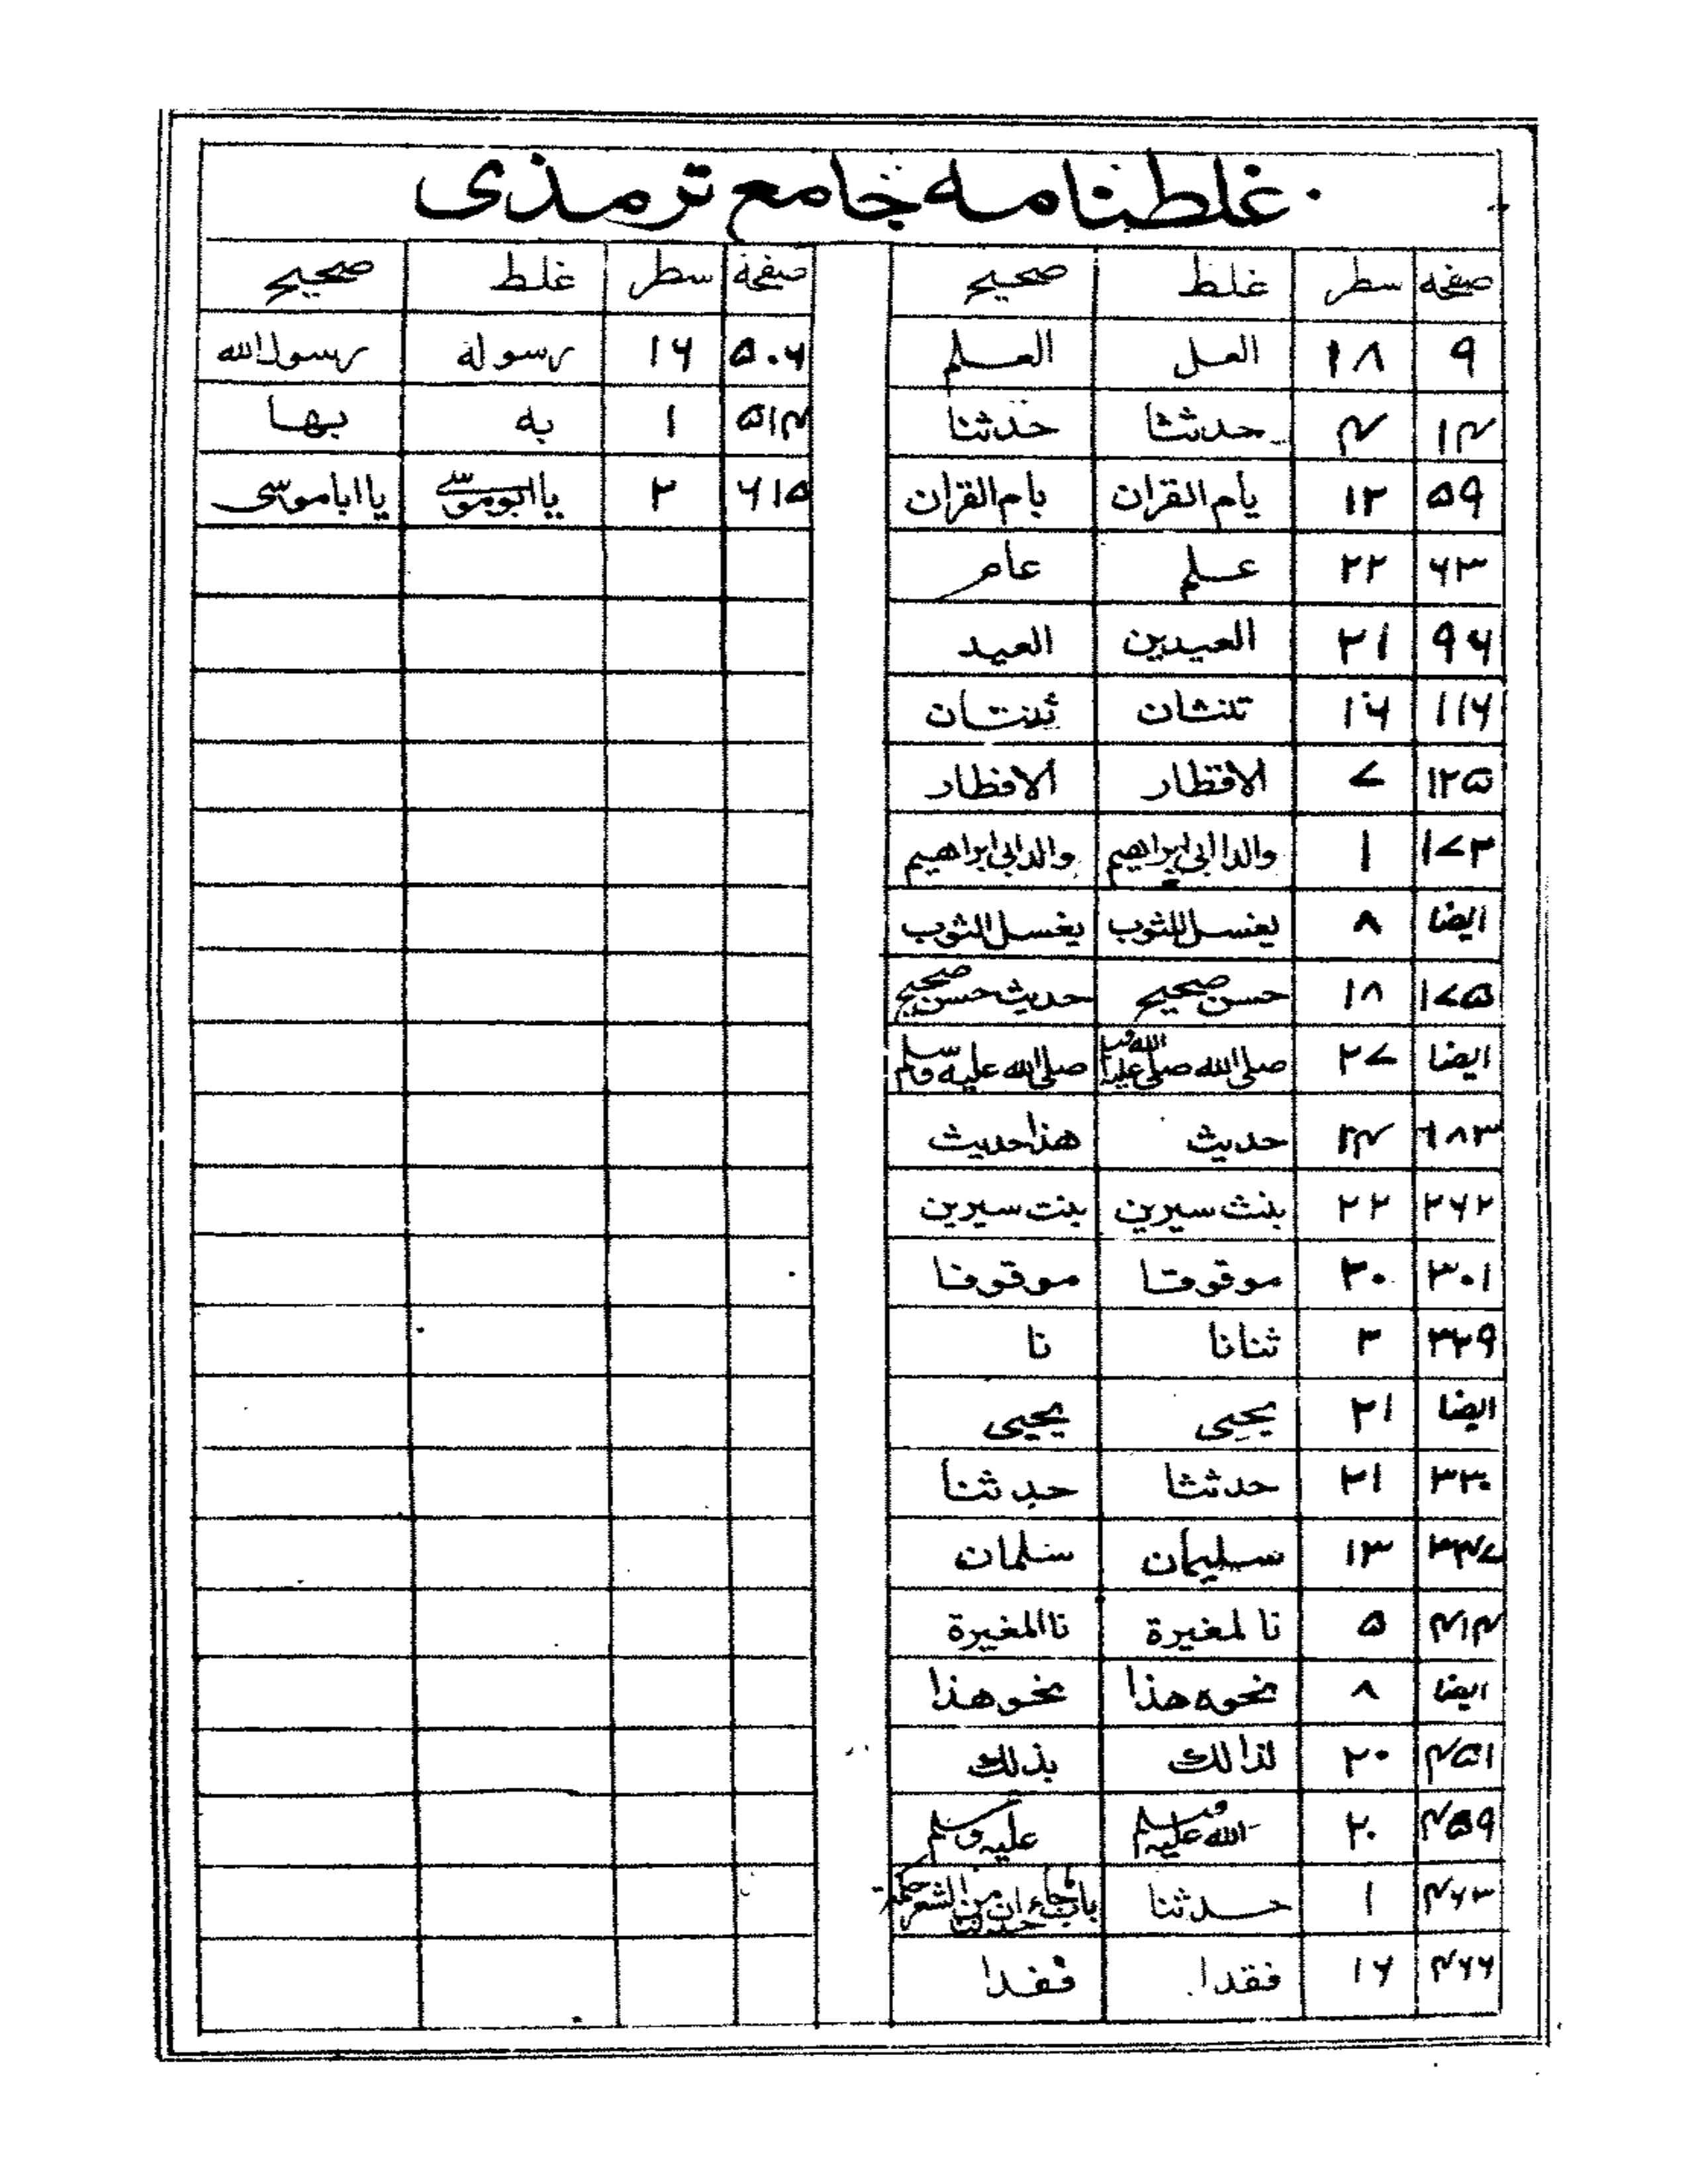 غلطنامه جامع ترمذی
صفحه سطر غلط صحیح
۹ ۱۸ العل العلم
۱۴ ۴ حدثثا حدثنا
۵۹ ۱۲ یأم القران بام القران
۶۳ ۲۲ علم عام
۹۶ ۲۱ العیدین العید
۱۱۶ ۱۶ تنثان ثنتان
۱۲۵ ۷ الاقطار الافطار
۱۷۳ ۱ والدا ابی ابراهیم والد ابی ابراهیم
ایضا ۸ یغسل للثوب یغسل الثوب
۱۷۵ ۱۸ حسن صحیح حدیث حسن صحیح
ایضا ۲۷ صلی الله صلی الله علیه صلی الله علیه وسلم
۱۸۳ ۲۴ حدیث هذا حدیث
۲۶۲ ۲۲ بنث سیرین بنت سیرین
۳۰۱ ۲۰ موقوقا موقوفا
۳۲۹ ۳ ثنانا نا
ایضا ۲۱ یحیی
۳۳۰ ۲۱ حدثثا حدثنا
۳۴۷ ۱۳ سلیمان سلمان
۴۱۴ ۵ نا لمغیرة نا المغیرة
ایضا ۸ نحوه هذا نحو هذا
۴۵۱ ۲۰ لذالك بذلك
۴۵۹ ۲۰ الله علیه وسلم علیه وسلم
۴۶۳ ۱ حدثنا باب ماجاء ان من الشعر حکمة حدثنا
۴۶۶ ۱۶ فقدا ففدا
صفحه سطر غلط صحیح
۵۰۶ ۱۶ رسوله رسول الله
۵۱۴ ۱ به بها
۶۱۵ ۲ یا ابو موسی یا ابا موسی